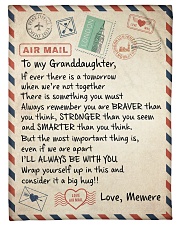 AIR MAIL
To my Granddaughter,
If ever there is a tomorrow
when we're not together
There is something you must
Always remember you are BRAVER than
you think, STRONGER than you seem
and SMARTER than you think.
But the most important thing is,
even if we are apart
I'LL ALWAYS BE WITH YOU
Wrap yourself up in this and
consider it a big hug!!
Love, Memere